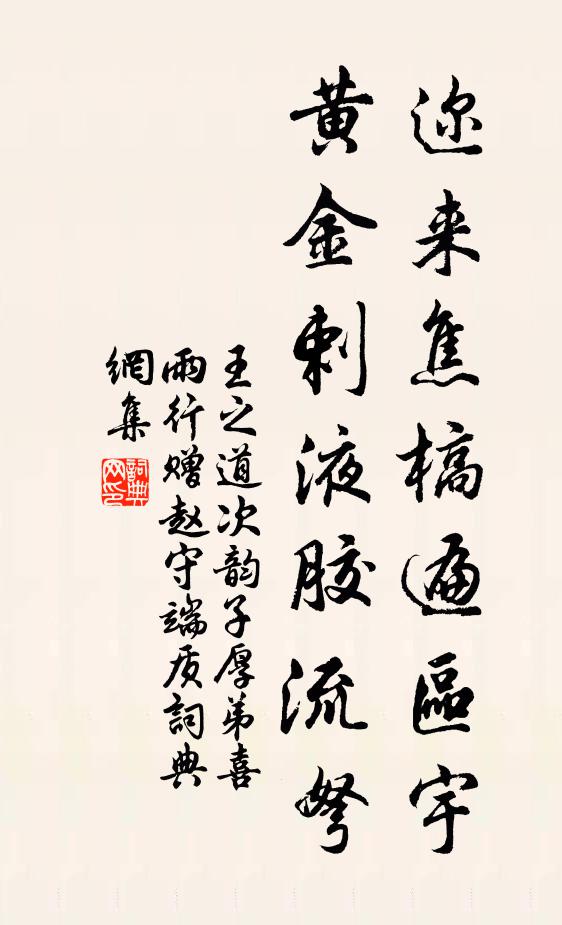 迩来焦槁遍區宇
黄金刺液胶流弩
王之道次韵子厚弟喜
雨行赠赵守端质詞典
網集
詞典
网印